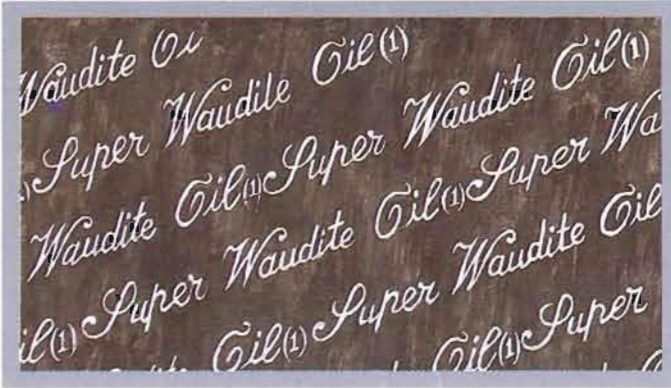 Waudite Oi
) Super Waudile Oil (1)
Waudite Oil (1) Super Waudite Oil (1)
il (1) Super Waudite Oil (1) Super Wa
Oil (1) Super Waudite Oil
Oil (1) Super